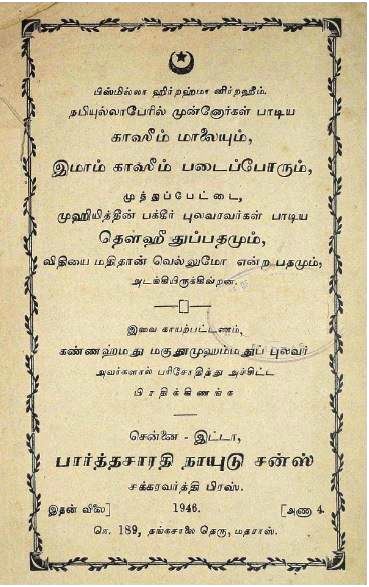 பிஸ்மில்லா ஹிர்றஹ்மா னிர்றஹீம்.
நபியுல்லாபேரில் முன்னோர்கள் பாடிய
காஸீம் மாலையும்,
இமாம் காஸீம் படைப்போரும்,
முத்துப்பேட்டை,
முஹியித்தீன் பக்கீர் புலவரவர்கள் பாடிய
தௌஹீ துப்பதமும்,
விதியை மதிதான் வெல்லுமோ என்ற பதமும்,
அடங்கியிருக்கின்றன.
இவை காயற்பட்டணம்,
கண்ணஹமது மகுதூமுஹம்மதுப் புலவர்
அவர்களால் பரிசோதித்து அச்சிட்ட
பிரதிக்கிணங்க
சென்னை - இட்டா,
பார்த்தசாரதி நாயுடு சன்ஸ்
சக்கரவர்த்தி பிரஸ்.
இதன் விலை] 1946. [அணா 4.
நெ. 189, தங்கசாலை தெரு, மதராஸ்.